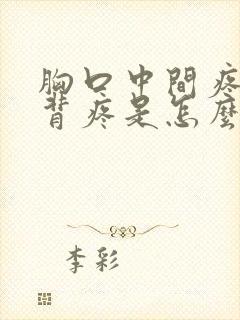 胸口中間疼
背疼是怎麼
李彩